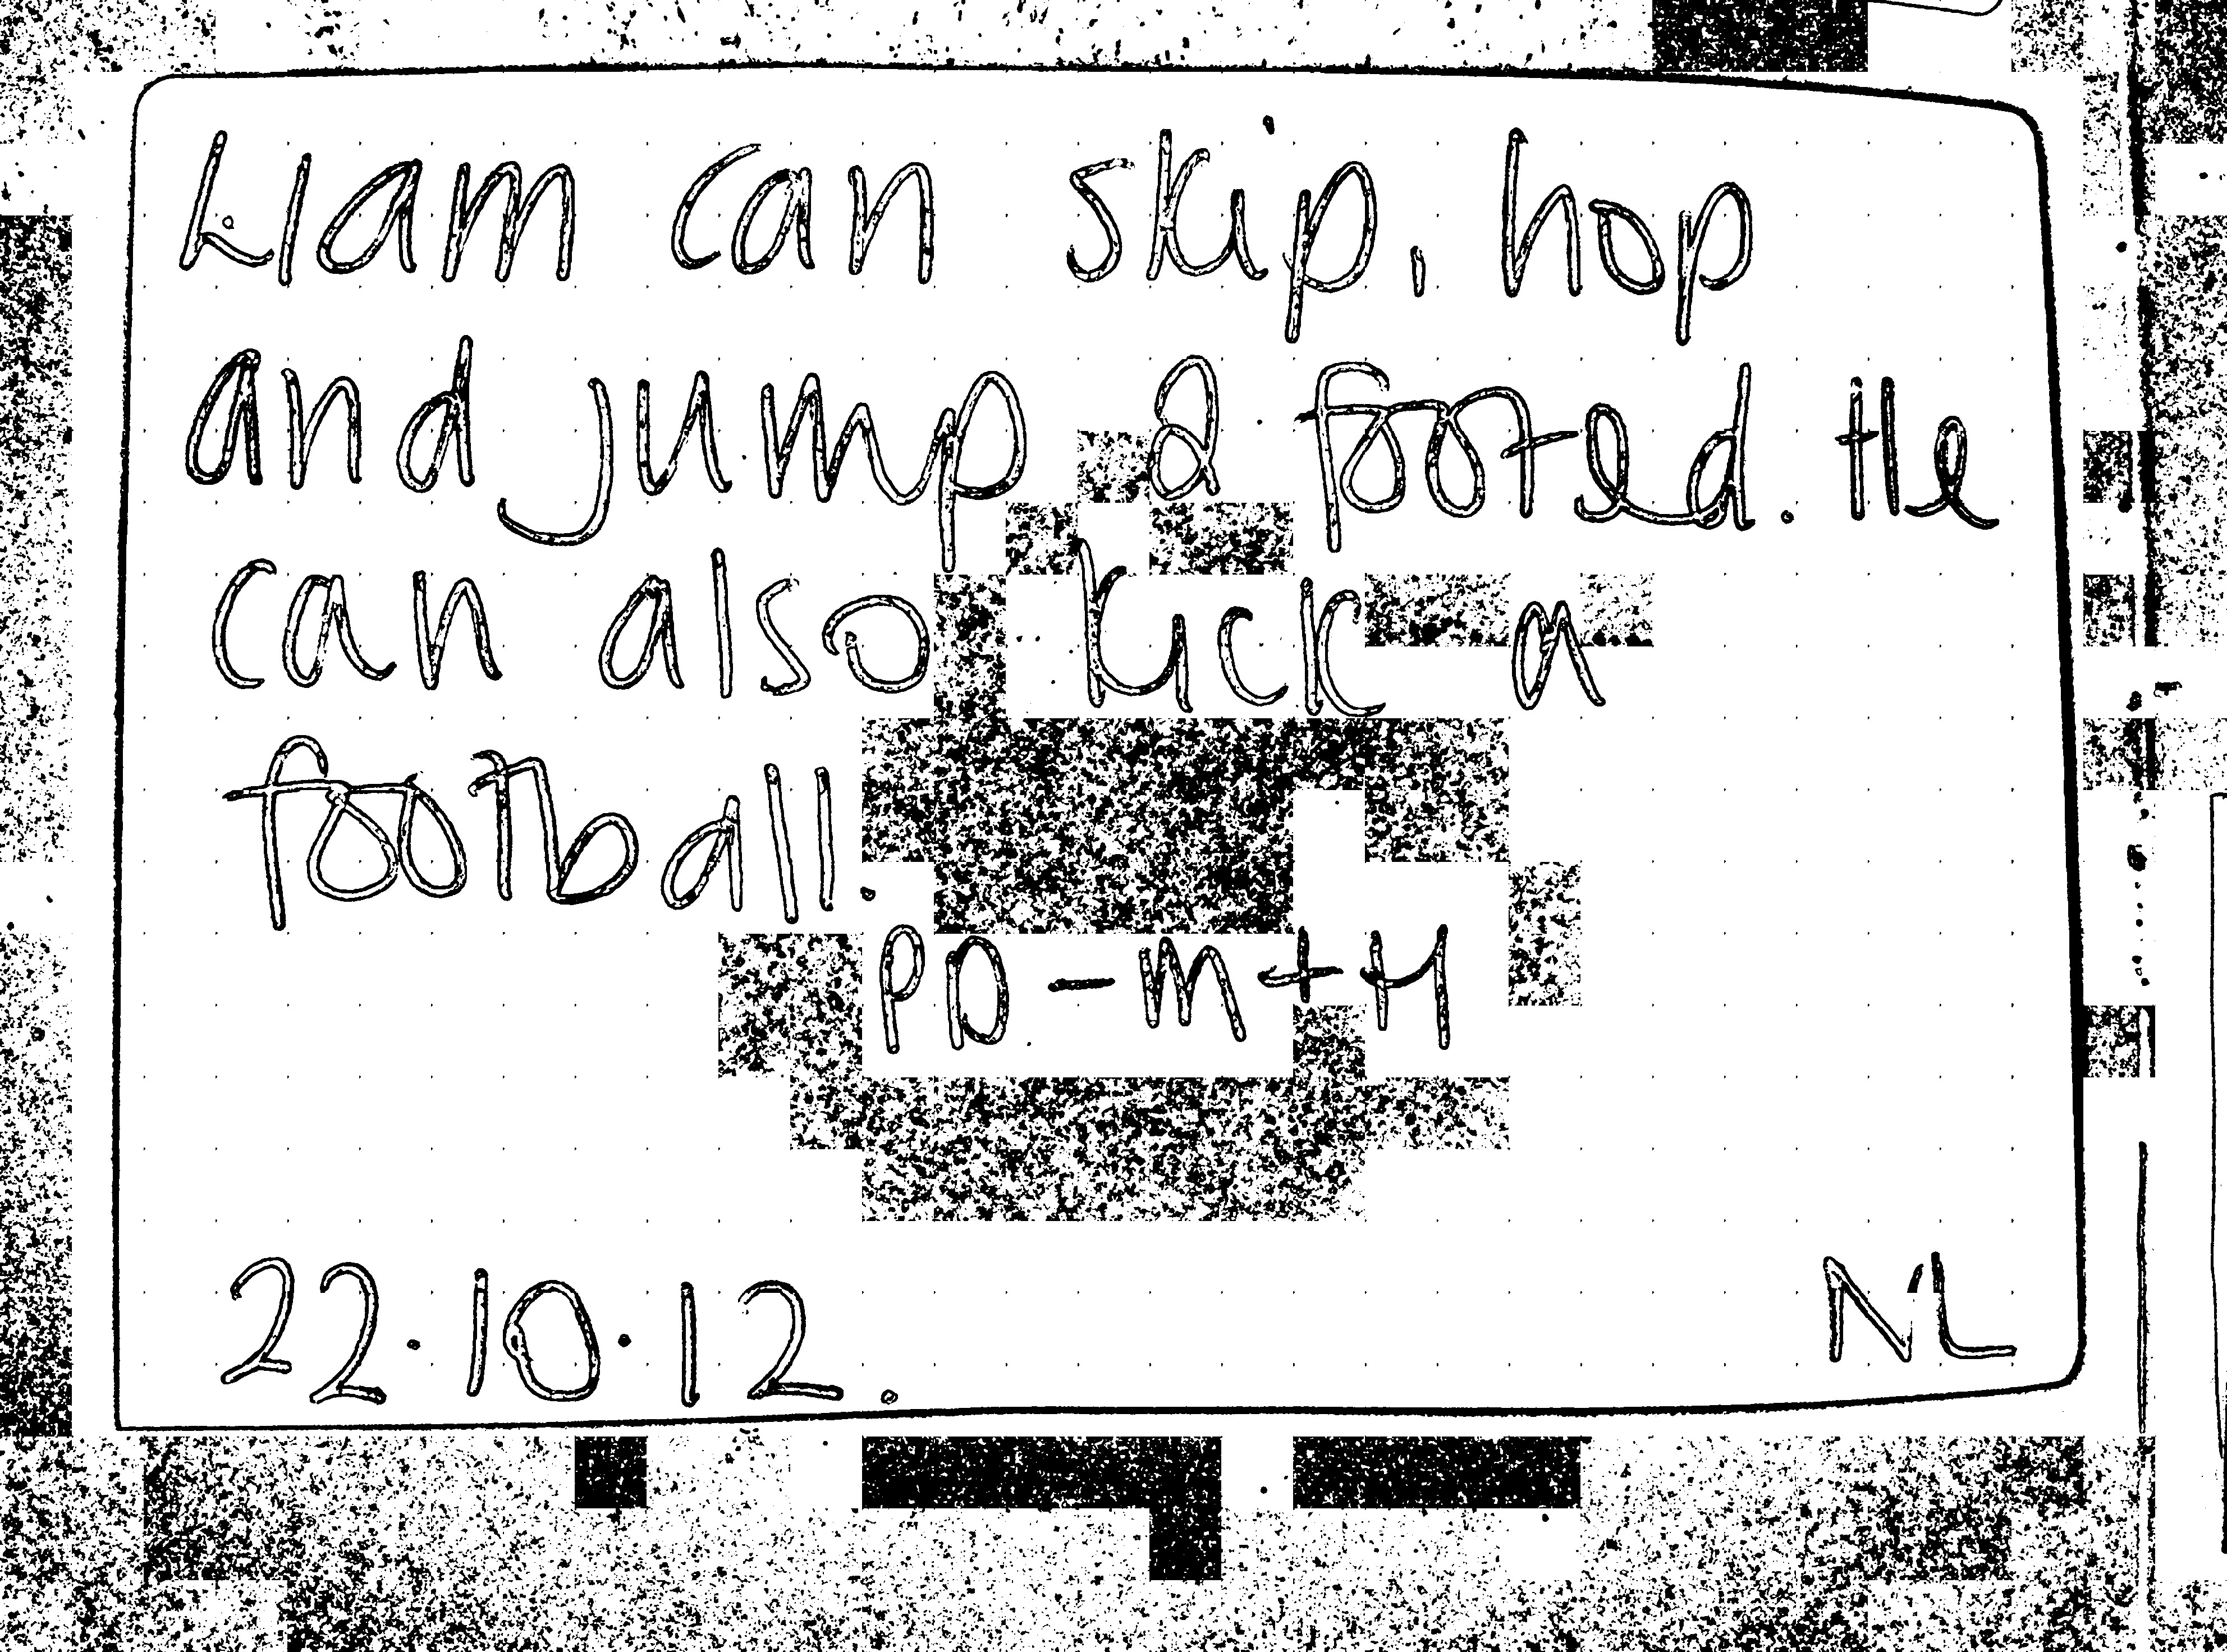 Liam can skip, hop
and jump 2 footed. He
can also kick a
football.
PD - M + H
22.10.12.
NL